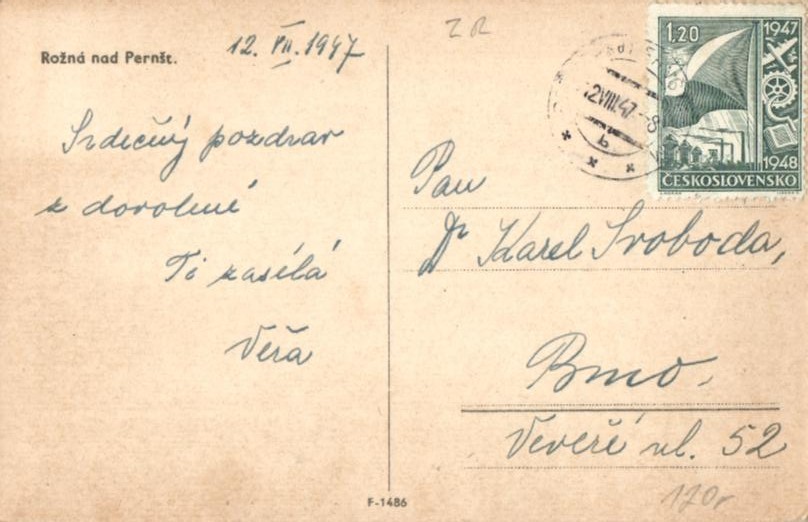 Rožná nad Pernšt.
12. VII. 1947
Srdečný pozdrav
z dovolené
Ti zasílá
Věra
F-1486
ZR
1,20
1947
1948
ČESKOSLOVENSKO
12.VIII.47.-8
b
Pan
Dr Karel Svoboda,
Brno.
Veveří ul. 52
120,-